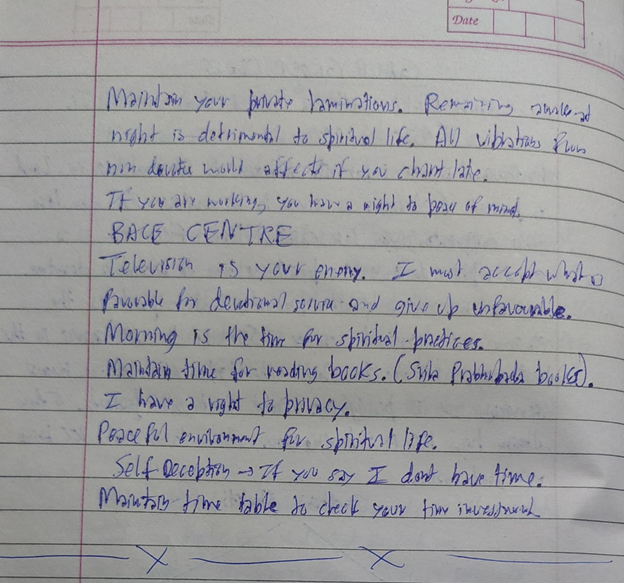 Date
Maintain your private laminations. Remaining awake at
night is detrimental to spiritual life. All vibrations from
non devotee world affects if you chant late.
If you are working, you have a right to peace of mind.
BACE CENTRE
Television is your enemy. I must accept what is
favourable for devotional service and give up unfavourable.
Morning is the time for spiritual practices.
Maintain time for reading books. (Srila Prabhupada books).
I have a right to privacy.
Peaceful environment for spiritual life.
Self Deception → If you say I dont have time.
Maintain time table to check your time investment